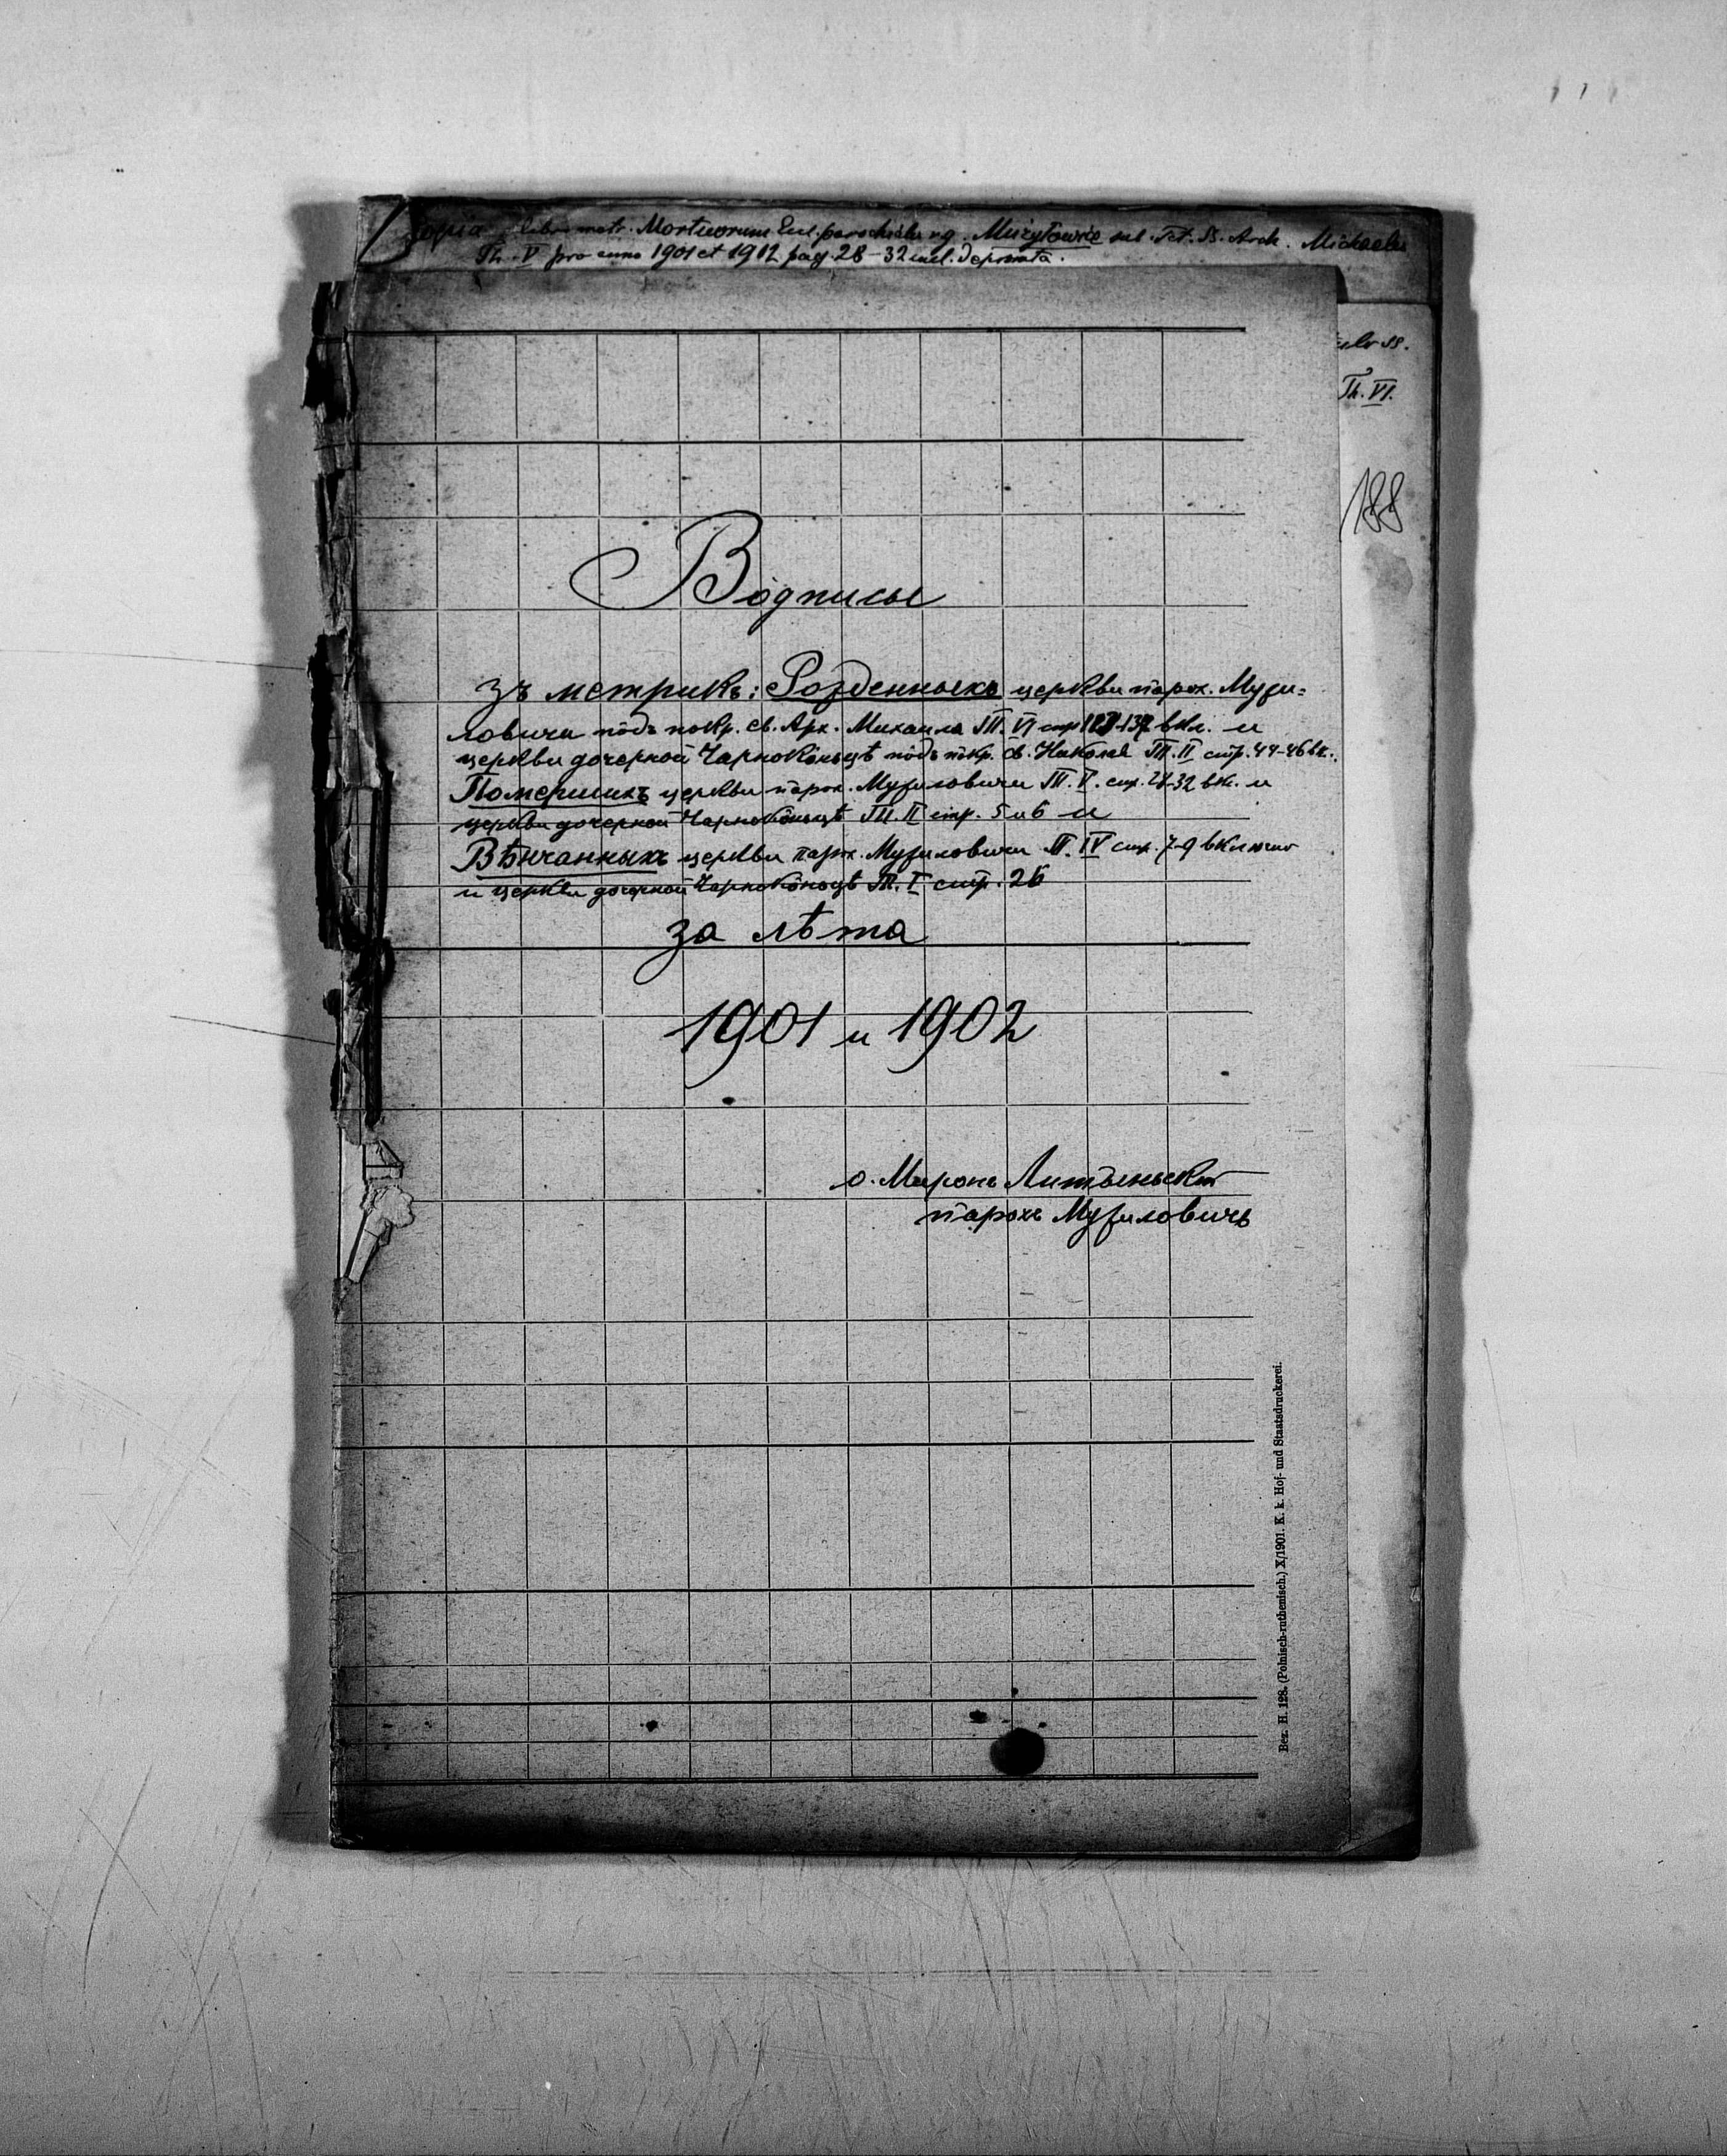 Copia libri metr. Mortuorum Eccl. parochialis r.g. Mużyłowice sub. Tit. SS. Arch. Michaelis
Th. V pro anno 1901 et 1912 pag. 28-32 incl.
SS.
Th. VI.
188
Водписы
зъ метрикъ: Рожденныхъ церкви парох. Мужи=
ловичи подъ покр. св. Арх. Михаила Т. VI стр вкл. и
церкви дочерной Чарнокôньцѣ пôдъ покр. св. Николая Т. II стр. 44-46 вк.
Помершихъ церкви парох. Мужиловичи Т. V. стр. 28-32 вк. и
церкви дочерной Чарнокôньцѣ Т. II стр. 5 и 6 и
Вѣнчанныхъ церкви парох. Мужиловичи Т. IV стр. 7-9 включно
и церкви дочерной Чарнокôньцѣ Т. I стр. 26
за лѣта
1901 и 1902
о. Миронъ Литыньскій
парохъ Мужиловичъ
Bez. H. 128. (Polnisch-ruthenisch.) X/1901. K. k. Hof- und Staatsdruckerei.